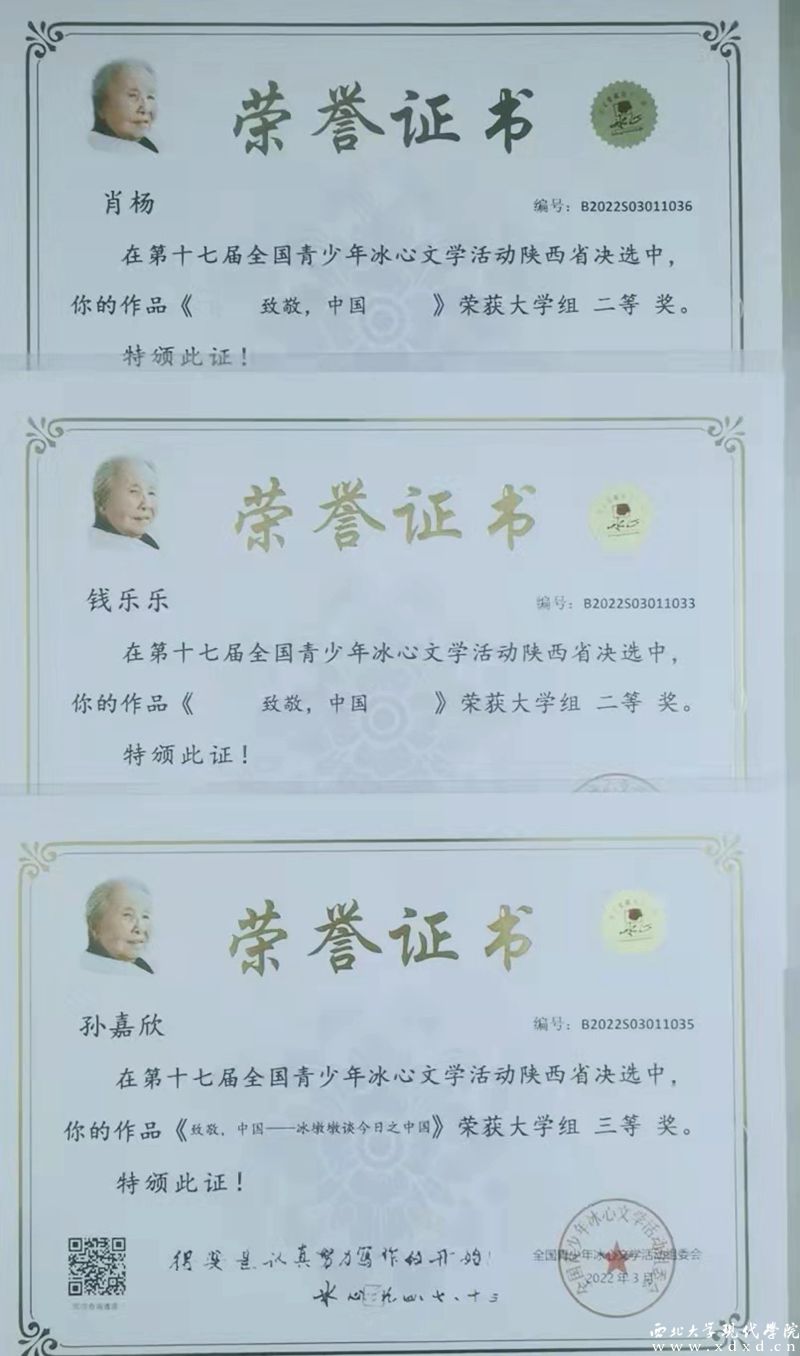 荣誉证书
肖杨
编号：B2022S03011036
在第十七届全国青少年冰心文学活动陕西省决选中，
你的作品《 致敬，中国 》荣获大学组 二等 奖。
特颁此证！
荣誉证书
钱乐乐
编号：B2022S03011033
在第十七届全国青少年冰心文学活动陕西省决选中，
你的作品《 致敬，中国 》荣获大学组 二等 奖。
特颁此证！
荣誉证书
孙嘉欣
编号：B2022S03011035
在第十七届全国青少年冰心文学活动陕西省决选中，
你的作品《致敬，中国——冰墩墩谈今日之中国》荣获大学组 三等 奖。
特颁此证！
得奖是认真努力写作的开始！
冰心
全国青少年冰心文学活动组委会
2022年3月
西北大学现代学院
www.xdxd.cn